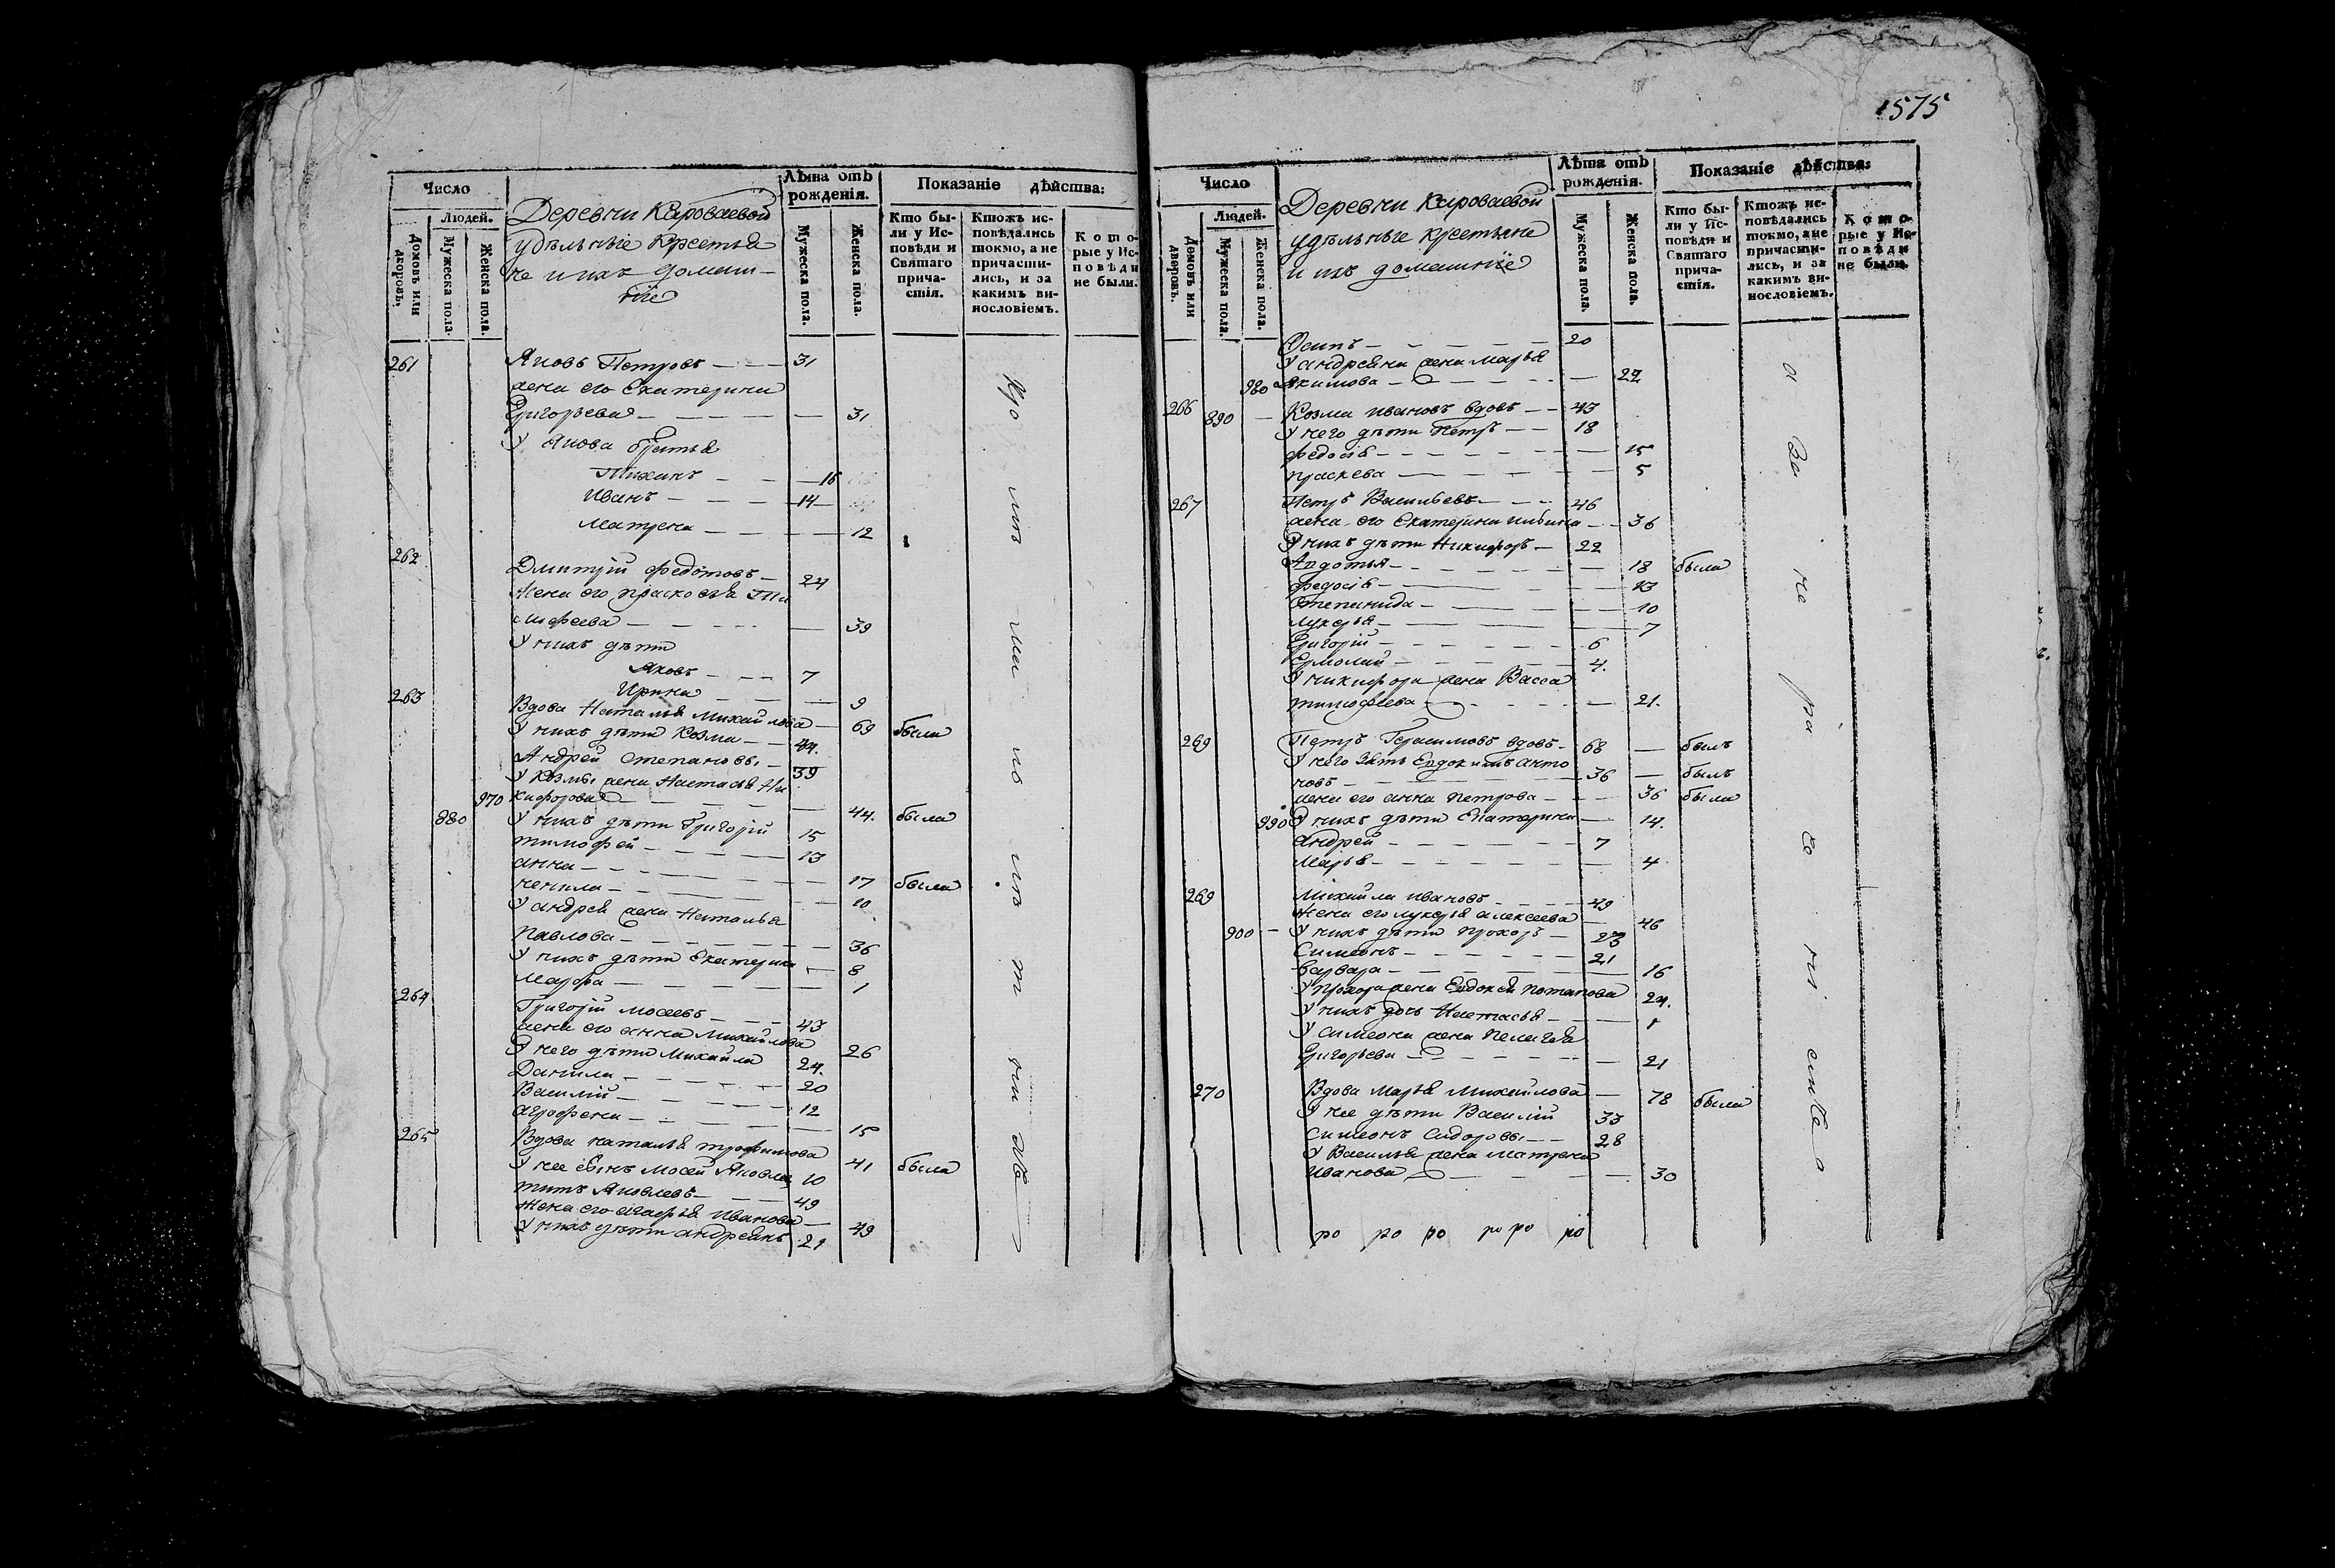 1575
Число
Людей.
Домовъ или дворовъ.
Мужеска пола.
Женска пола.
Деревни Кароваевой
удѣльные крестья
не и ихъ домаш-
ніе
Лѣта отъ рожденія.
Мужеска пола.
Женска пола.
Показаніе дѣйства:
Кто бы-
ли у Ис-
повѣди и
Святаго
прича-
стія.
Ктожъ ис-
повѣдались
токмо, а не
причасти-
лись, и за
какимъ ви-
нословіемъ.
Кото-
рые у Ис-
повѣди
не были.
261 Яковъ Петровъ 31
жена его Екатерина
Григорьева 31
У Якова братья
16
Иванъ 14
Матрена 12
262
Дмитрій Федотовъ 24
Жена его Прасковья Ти
мофеева 39
У нихъ дѣти
Яковъ 7
Ирина 9
263 Вдова Наталья Михайлова 69 была
У нихъ дѣти Козма 44.
Андрей Степановы 39
У Козмы жена Настасья Ни
970 кифорова 44. была
880 У нихъ дѣти Григорій 15
Тимофей 13
Анна 17 была
Ненила 10
У Андрея жена Наталья
Павлова 36
У нихъ дѣти Екатерина 8
Марфа 1
264 Григорій Мосеевъ 43
жена его Анна Михайлова 26
У него дѣти Михайла 24.
Данила 20
Василій 12
Агрофена 15
265 Вдова Наталья Трофимова 41 была
У нее сынъ Мосей Яковлев 10
Титъ Яковлевъ 49
Жена его Агафья Иванова 49
У нихъ дѣти Андреянъ 21
Число
Людей.
Домовъ или дворовъ.
Мужеска пола.
Женска пола.
Деревни Кароваевой
удѣльные крестьяне
и ихъ домашніе
Лѣта отъ рожденія.
Мужеска пола.
Женска пола.
Показаніе дѣйства:
Кто бы-
ли у Ис-
повѣди и
Святаго
прича-
стія.
Ктожъ ис-
повѣдались
токмо, а не
причасти-
лись, и за
какимъ ви-
нословіемъ.
Кото-
рые у Ис-
повѣди
не были.
Осипъ 20
У Андреяна жена Марья
980 Якимова 22
266 890 Козма Ивановъ вдовъ 43
У него дѣти Петръ 18
Федосья 15
Праскева 5
267 Петръ Васильевъ 46
жена его Екатерина 36
У нихъ дѣти Никифоръ 22
Авдотья 18 была
Федосья 13
Степанида 10
Лукерья 7
Григорій 6
Ермолай 4.
У Никифора жена Васса
Тимофеева 21.
269 Петръ Герасимовъ вдовъ 68 былъ
У него зять Евдокимъ Анто
новъ 36 былъ
жена его Анна Петрова 36 была
990 У нихъ дѣти Екатерина 14.
Андрей 7
Марья 4
269 Михайла Ивановъ 49
Жена его Лукерья Алексеева 46
900 У нихъ дѣти Прохоръ 23
Симеонъ 21
Варвара 16
У Прохора жена Евдокея Потапова 24.
У нихъ дочь Настасья 1
У Симеона жена Пелагея
Григорьева 21
270 Вдова Марья Михайлова 78 была
У нее дѣти Василій 33
Симеонъ Сидоровы 28
У Василья жена Матрена
Иванова 30
ро ро ро ро ро ро